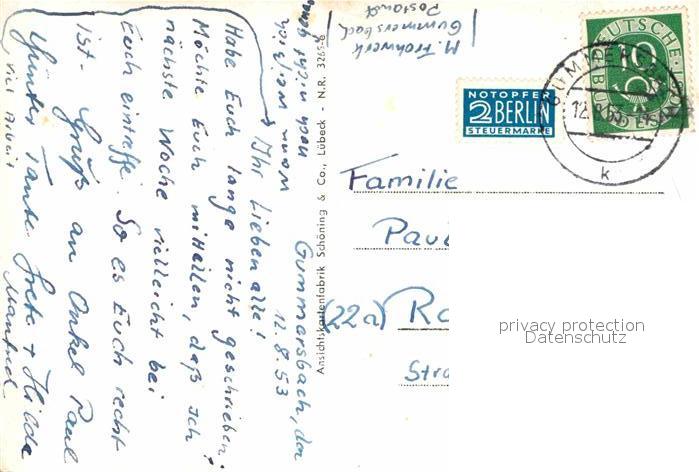 Gummersbach, den
12.8.53
Ihr Lieben alle!
Habe Euch lange nicht geschrieben.
Möchte Euch mitteilen, daß ich
nächste Woche vielleicht bei
Euch eintreffe. So es Euch recht
ist. Gruß an Onkel Paul
Günter Tante Grete + Hilde
Manfred
Viel Arbeit
Wann weiß ich
noch nicht genau
Ansichtskartenfabrik Schöning & Co., Lübeck - N.R. 3265-6
M. Frohwerk
Gummersbach
Postamt
NOTOPFER
2 BERLIN
STEUERMARKE
DEUTSCHE
10
BUNDESPOST
GUMMERSBACH
12.8.53
k
Familie
Paul
(22a) Ra
Stra
privacy protection
Datenschutz